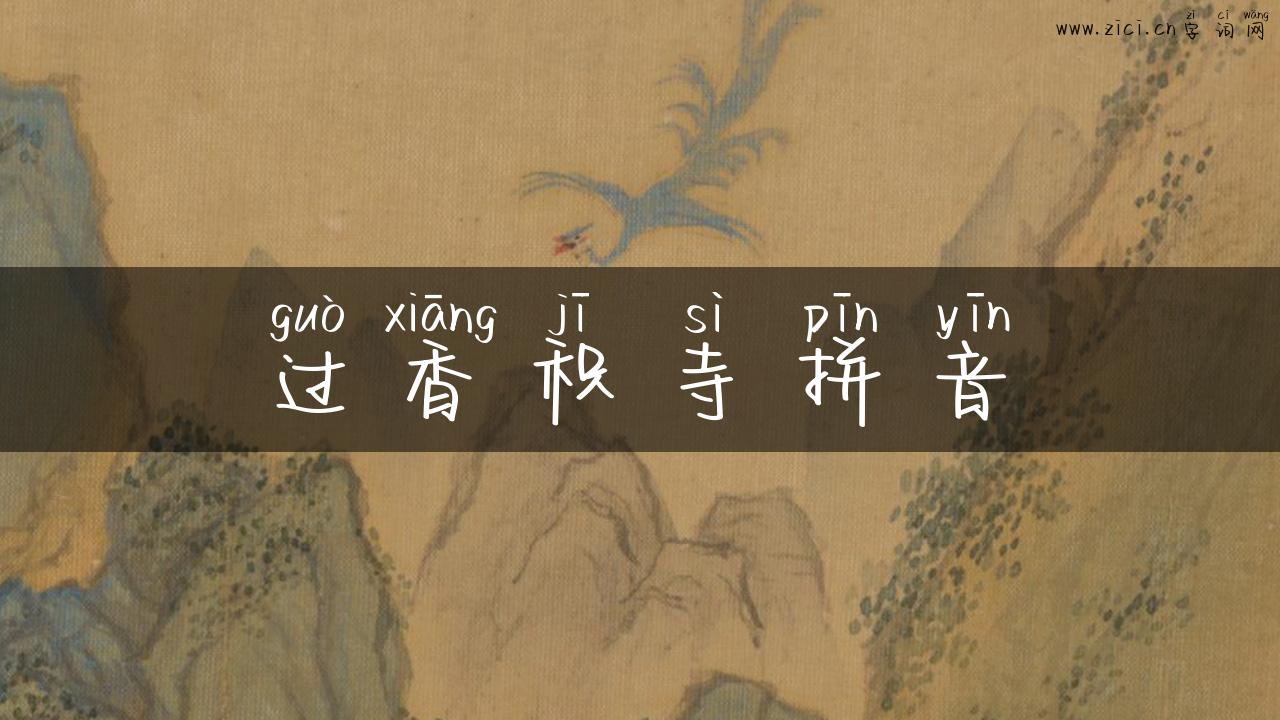 zì cí wǎng
www.zici.cn字词网
guò xiāng jī sì pīn yīn
过香积寺拼音